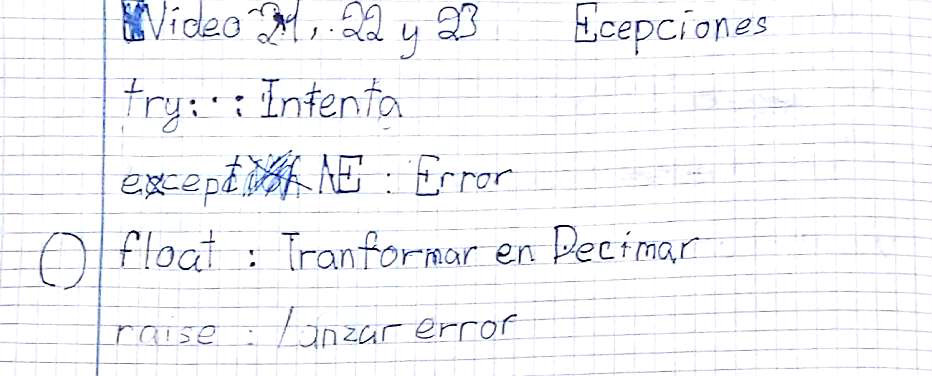 Video 21, 22 y 23 Ecepciones
try: : Intenta
except E : Error
float : Tranformar en Decimar
raise : lanzar error